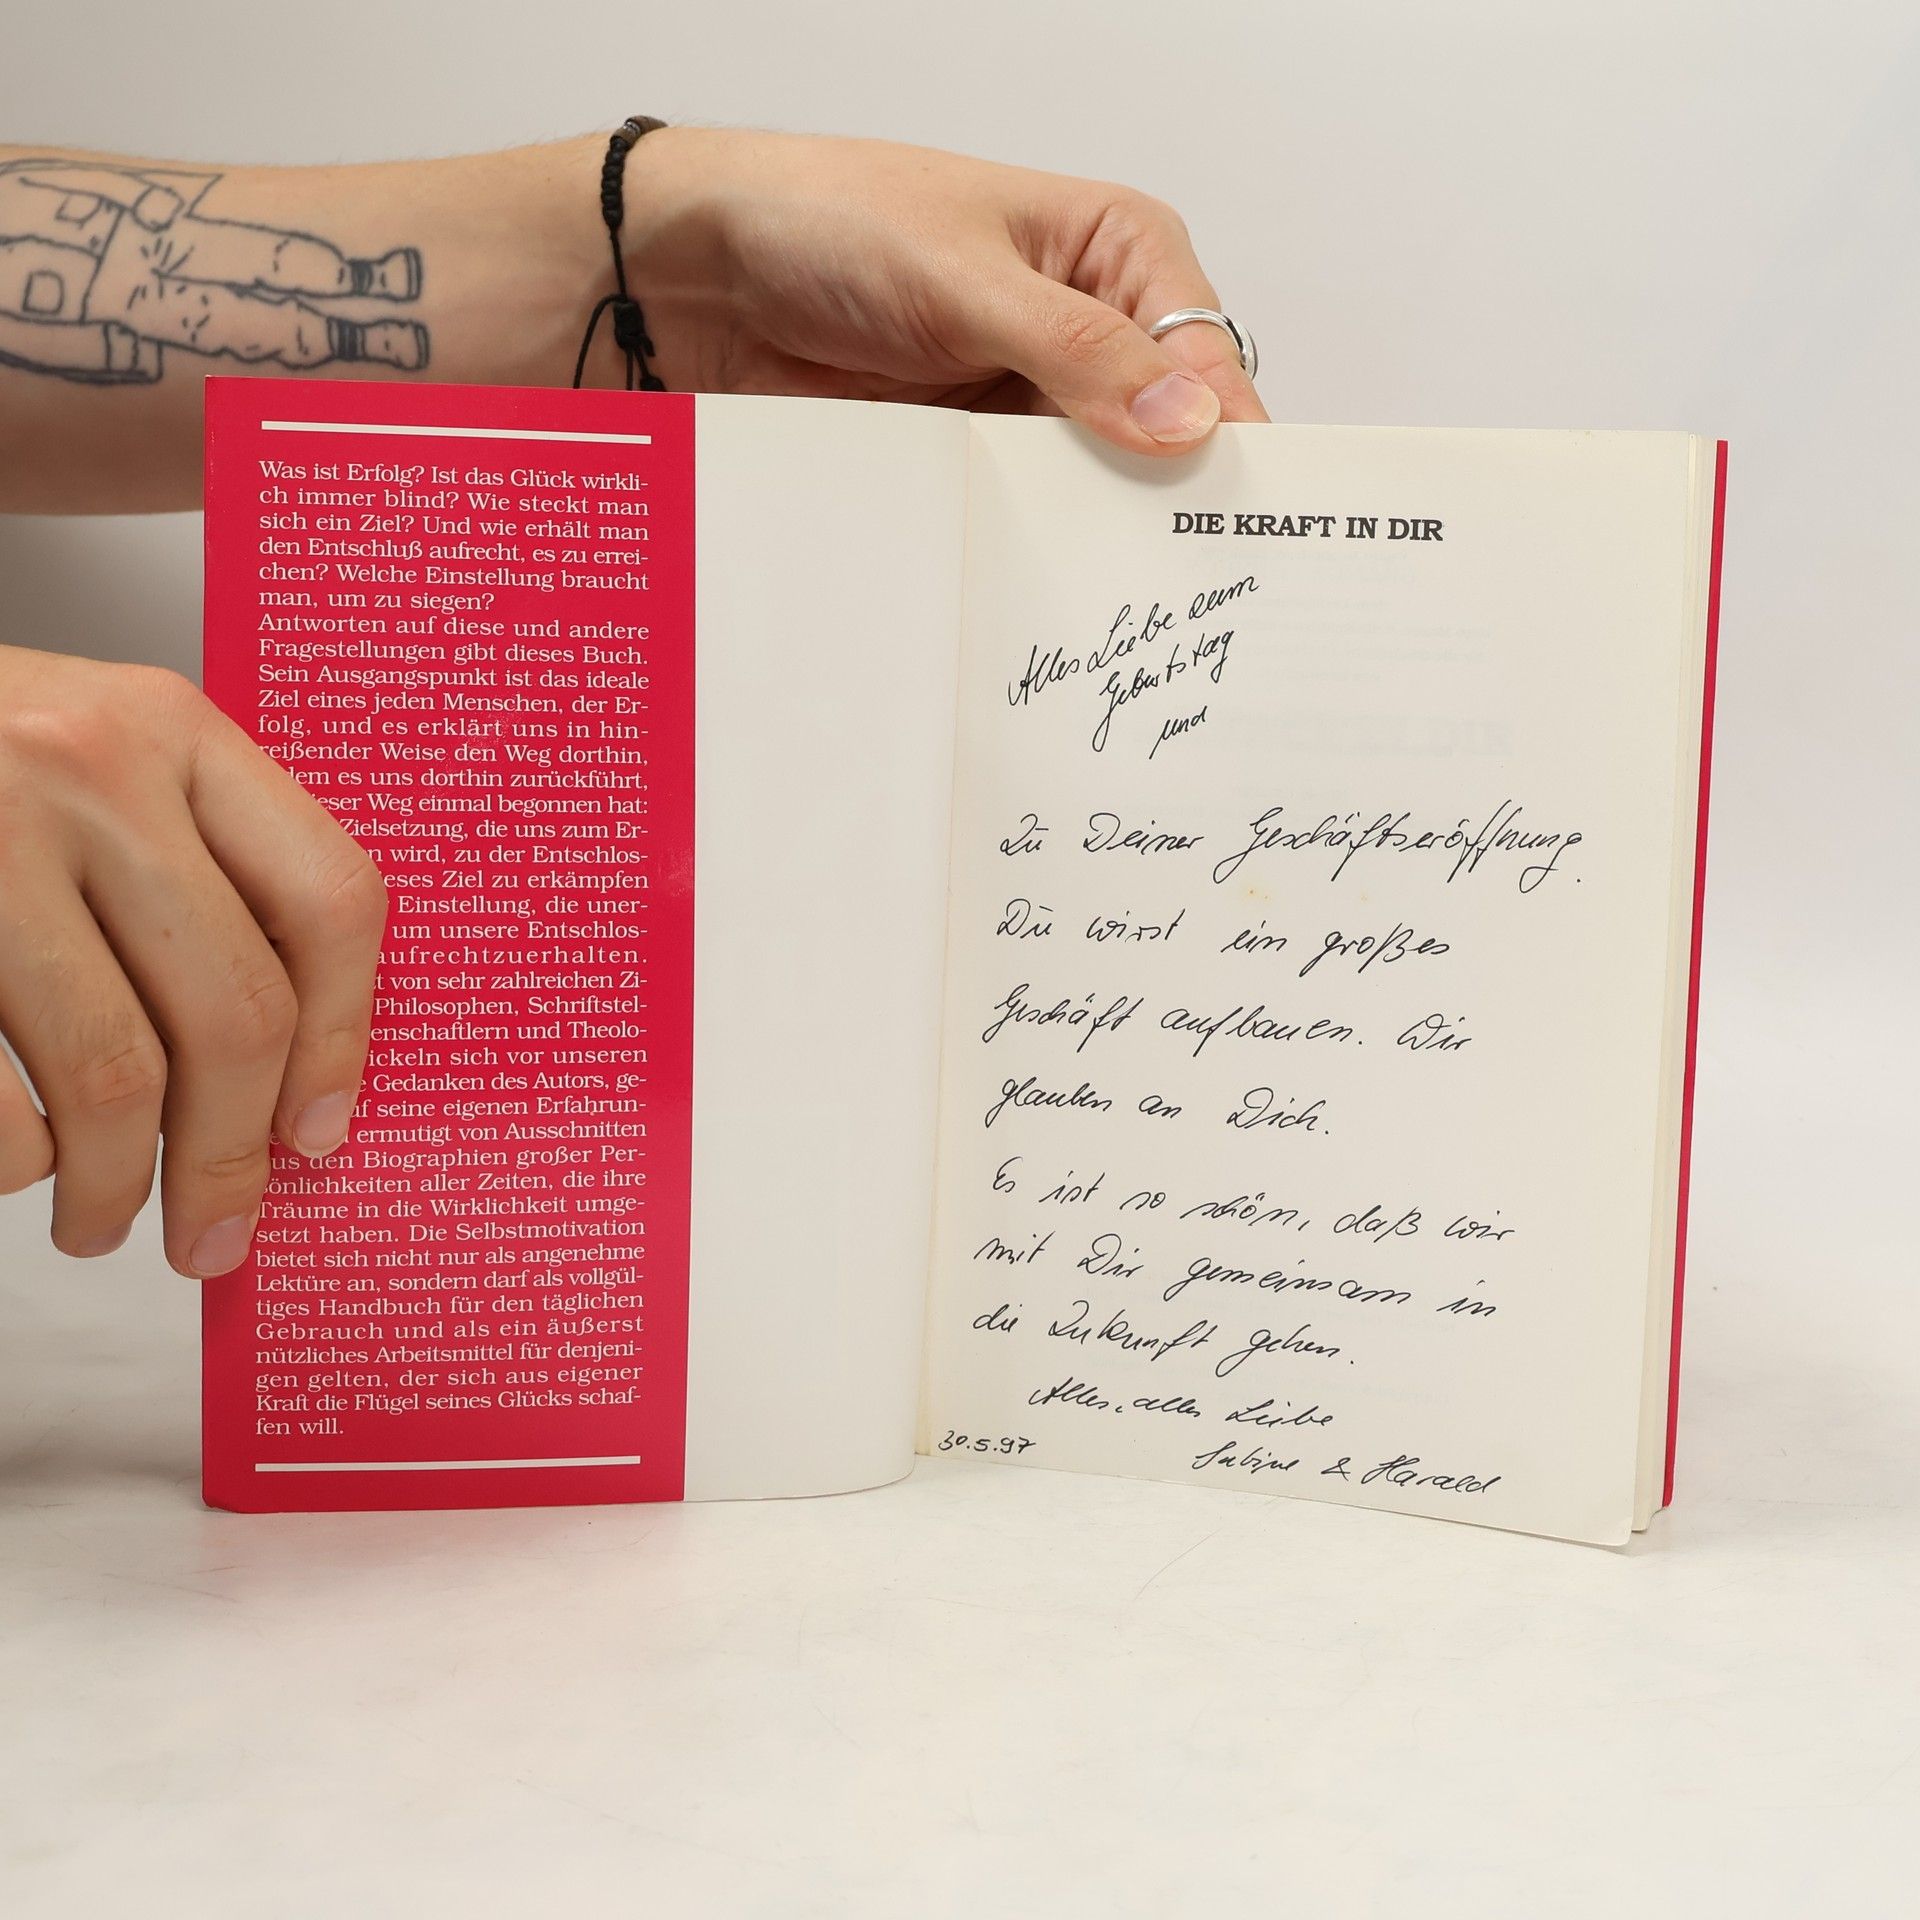 Was ist Erfolg? Ist das Glück wirkli-
ch immer blind? Wie steckt man
sich ein Ziel? Und wie erhält man
den Entschluß aufrecht, es zu errei-
chen? Welche Einstellung braucht
man, um zu siegen?
Antworten auf diese und andere
Fragestellungen gibt dieses Buch.
Sein Ausgangspunkt ist das ideale
Ziel eines jeden Menschen, der Er-
folg, und es erklärt uns in hin-
reißender Weise den Weg dorthin,
dem es uns dorthin zurückführt,
ieser Weg einmal begonnen hat:
Zielsetzung, die uns zum Er-
n wird, zu der Entschlos-
ieses Ziel zu erkämpfen
Einstellung, die uner-
um unsere Entschlos-
aufrechtzuerhalten.
t von sehr zahlreichen Zi-
Philosophen, Schriftstel-
enschaftlern und Theolo-
ickeln sich vor unseren
e Gedanken des Autors, ge-
uf seine eigenen Erfahrun-
ermutigt von Ausschnitten
us den Biographien großer Per-
sönlichkeiten aller Zeiten, die ihre
Träume in die Wirklichkeit umge-
setzt haben. Die Selbstmotivation
bietet sich nicht nur als angenehme
Lektüre an, sondern darf als vollgül-
tiges Handbuch für den täglichen
Gebrauch und als ein äußerst
nützliches Arbeitsmittel für denjeni-
gen gelten, der sich aus eigener
Kraft die Flügel seines Glücks schaf-
fen will.
DIE KRAFT IN DIR
Alles Liebe zum
Geburtstag
und
Zu Deiner Geschäftseröffnung.
Du wirst ein großes
Geschäft aufbauen. Wir
glauben an Dich.
Es ist so schön, daß wir
mit Dir gemeinsam in
die Zukunft gehen.
Alles, alles Liebe
30.5.97
Sabine & Harald